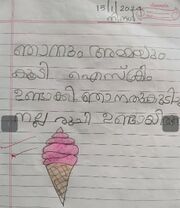 15/1/2024
ഞാനും അമ്മയും
കൂടി ഐസ്ക്രീം
ഉണ്ടാക്കി ഞാനതുകുടിച്ചു
നല്ല രുചി ഉണ്ടായി